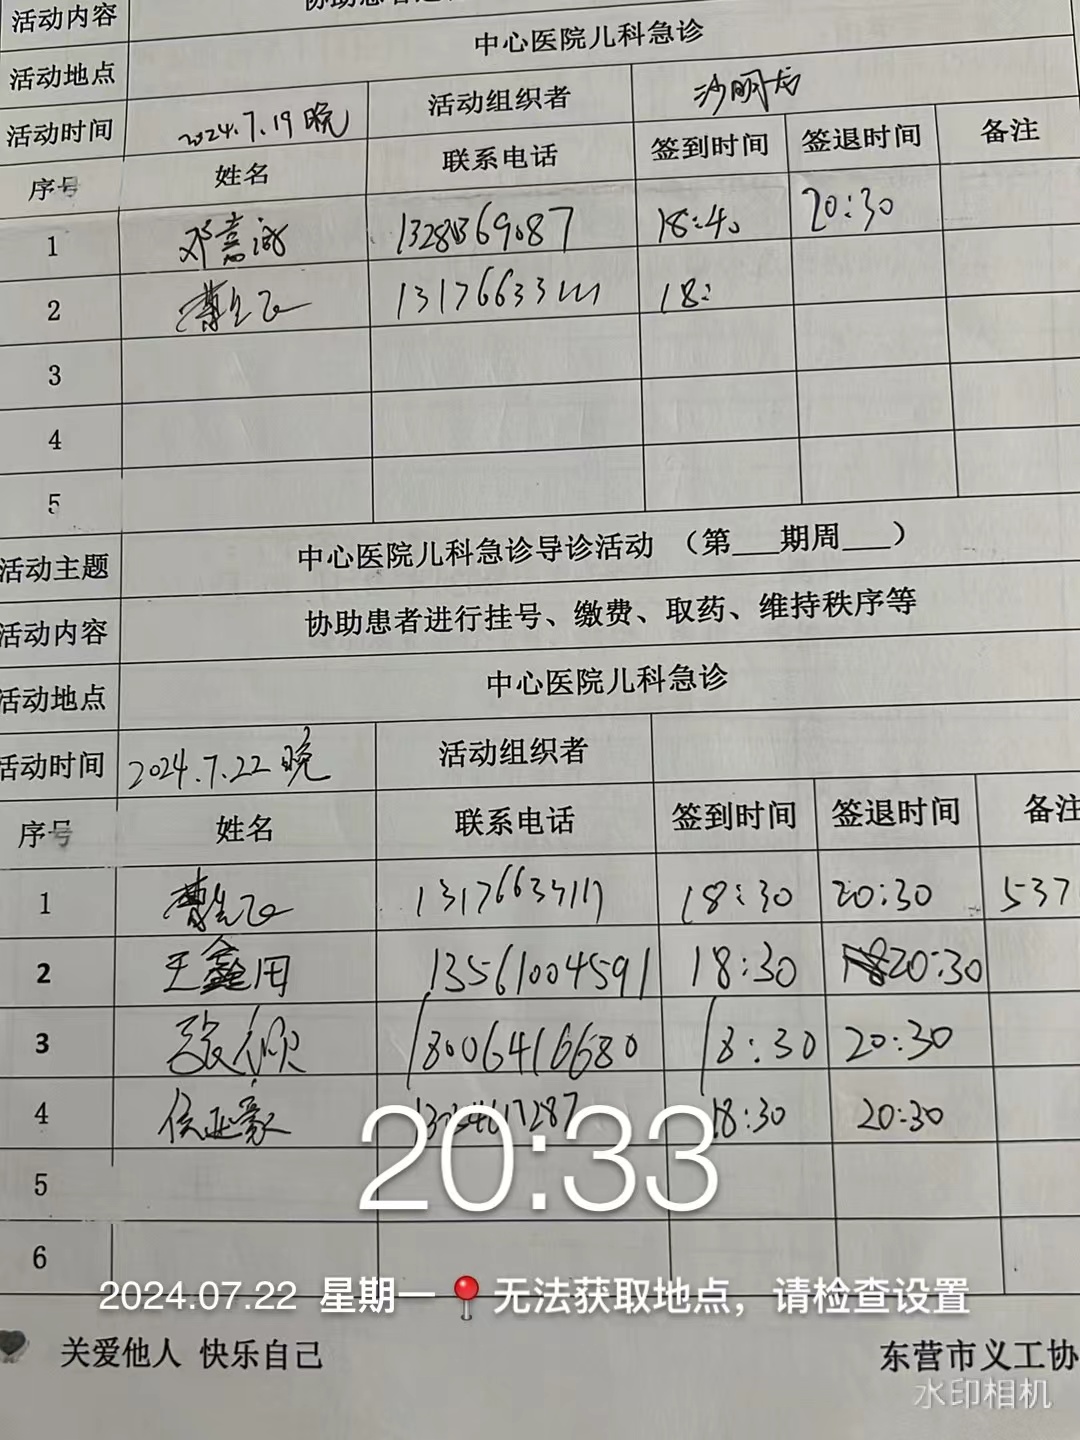 活动内容
活动地点 中心医院儿科急诊
活动时间 2024.7.19晚 活动组织者
序号 姓名 联系电话 签到时间 签退时间 备注
1 18:40 20:30
2 18:
3
4
5
活动主题 中心医院儿科急诊导诊活动 (第___期周___)
活动内容 协助患者进行挂号、缴费、取药、维持秩序等
活动地点 中心医院儿科急诊
活动时间 2024.7.22晚 活动组织者
序号 姓名 联系电话 签到时间 签退时间 备注
1 18:30 20:30 537
2 王鑫用 13561004591 18:30 20:30
3 18006416680 18:30 20:30
4 侯延豪 18:30 20:30
20:33
5
6
2024.07.22 星期一 无法获取地点，请检查设置
关爱他人 快乐自己 东营市义工协
水印相机